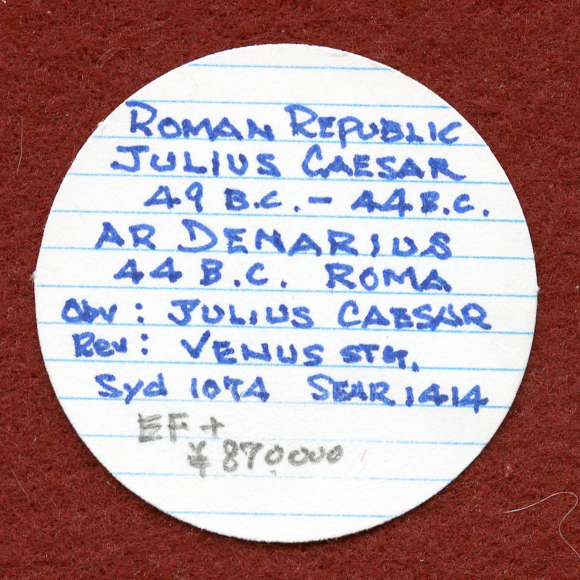 ROMAN REPUBLIC
JULIUS CAESAR
49 B.C. – 44 B.C.
AR DENARIUS
44 B.C. ROMA
Obv : JULIUS CAESAR
Rev : VENUS STG.
Syd 1074 SEAR 1414
EF +
¥ 870000